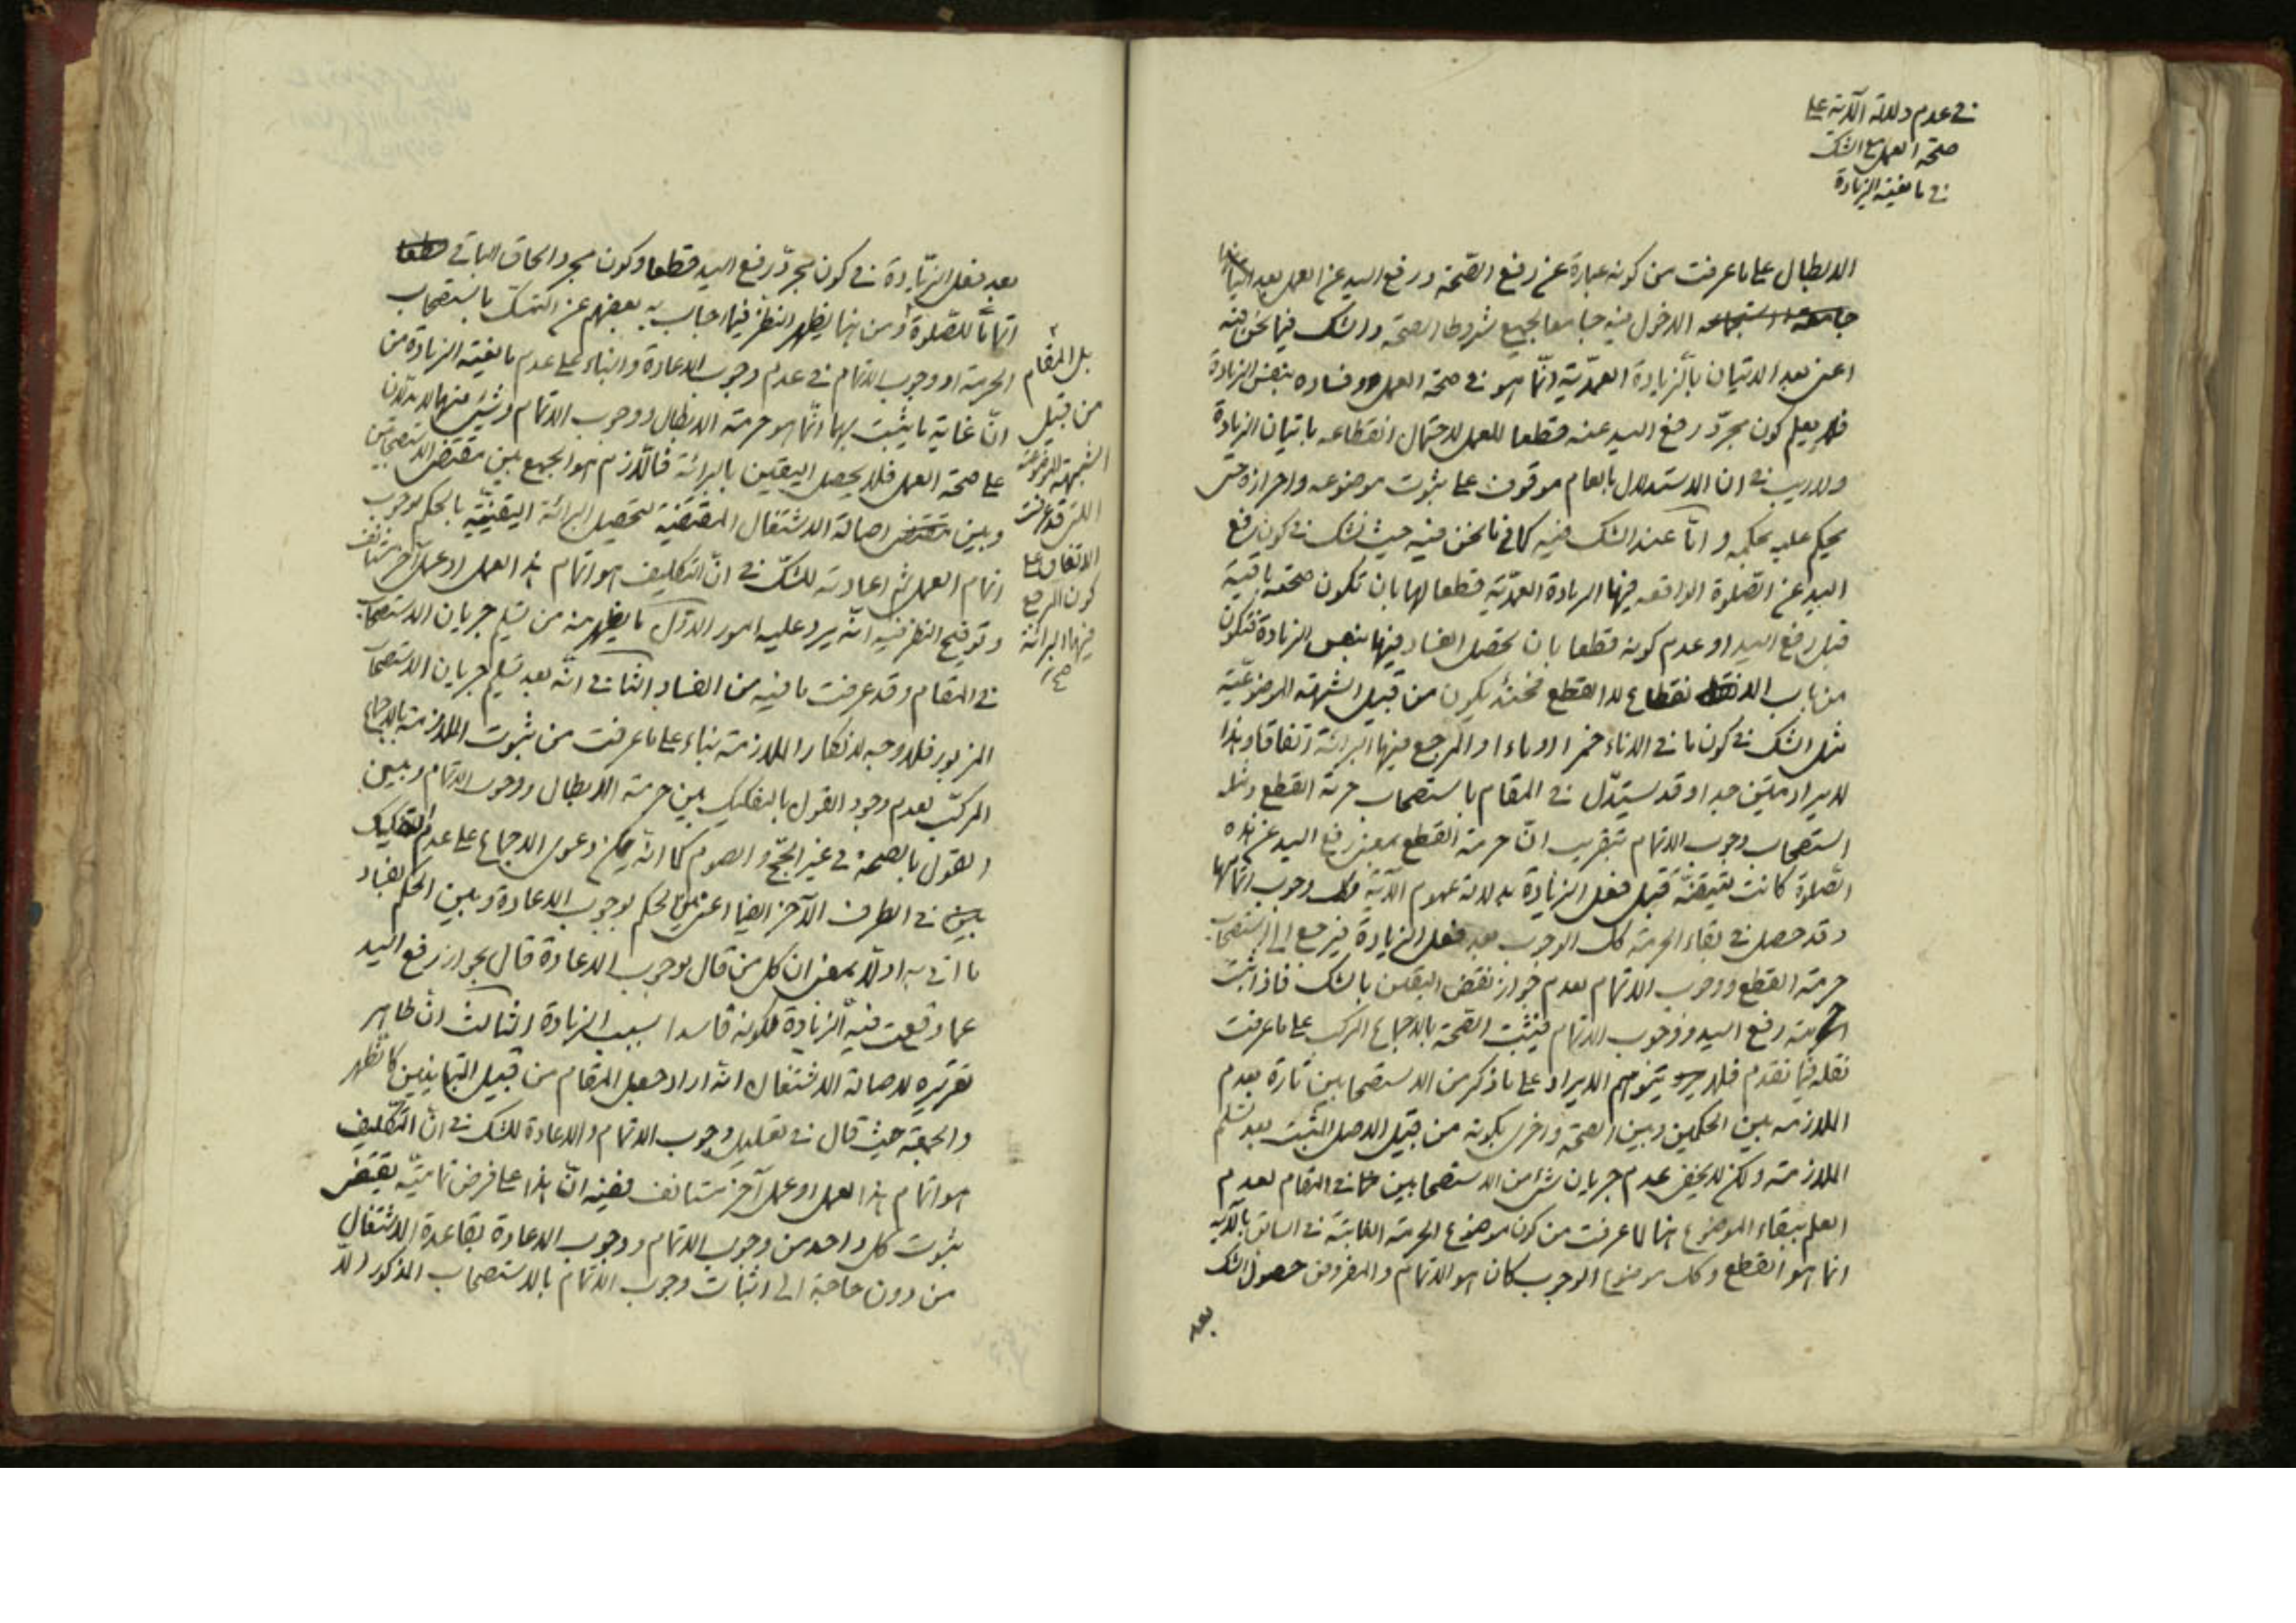 في عدم دلالة الآية على
صحة العمل مع الشك
في مانعية الزيادة
الابطال على ما عرفت من كونه عبارة عن رفع الصحة ورفع اليد عن العمل بعد
الدخول فيه جامعا لجميع شروط الصحة والشك فيما نحن فيه
اعنى بعد الاتيان بالزيادة العمدية انما هو في صحة العمل وفساده بنفس الزيادة
فلم يعلم كون مجرد رفع اليد عنه قطعا للعمل لاحتمال انقطاعه باتيان الزيادة
ولا ريب في ان الاستدلال بالعام موقوف على ثبوت موضوعه واحرازه حتى
يحكم عليه بحكمه واما عند الشك فيه كما في ما نحن فيه حيث نشك في كون رفع
اليد عن الصلوة الواقعه فيها الزيادة العمدية قطعا لها بان تكون صحته باقية
قبل رفع اليد او عدم كونه قطعا بان يحصل الفساد فيها بنفس الزيادة فتكون
من باب الانقطاع لا القطع فحينئذ يكون من قبيل الشبهة الموضوعية
مثل الشك في كون ما في الاناء خمرا او ماءا والمرجع فيها البرائة اتفاقا وهذا
الايراد متين جدا وقد يستدل في المقام باستصحاب حرمة القطع ومثله
استصحاب وجوب الاتمام بتقريب ان حرمة القطع بمعنى رفع اليد عن هذه
الصلوة كانت متيقنة قبل فعل الزيادة بدلالة عموم الآية وكك وجوب اتمامها
وقد حصل في بقاء الحرمة كك الوجوب بعد فعل الزيادة فيرجع الى استصحاب
حرمة القطع ووجوب الاتمام بعدم جواز نقض اليقين بالشك فاذا ثبت
حرمة رفع اليد ووجوب الاتمام فيثبت الصحة بالاجماع المركب على ما عرفت
نقله فيما تقدم فلا يتوهم الايراد على ما ذكر من الاستصحابين تارة بعدم
الملازمة بين الحكمين وبين الصحة واخرى بكونه من قبيل الاصل المثبت بعد تسليم
الملازمة ولكن لا يخفى عدم جريان شئ من الاستصحابين في المقام لعدم
العلم ببقاء الموضوع هنا لما عرفت من كون موضوع الحرمة الثابتة في السابق بالآية
انما هو القطع وكك موضوع الوجوب كان هو الاتمام والمفروض حصول الشك
بعد
بعد فعل الزيادة في كون مجرد رفع اليد قطعا وكون مجرد الحاق الباقي
اتماما للصلوة ومن هنا يظهر النظر فيما اجاب به بعضهم عن التمسك باستصحاب
الحرمة او وجوب الاتمام في عدم وجوب الاعادة والبناء على عدم مانعية الزيادة من
ان غاية ما يثبت بهما انما هو حرمة الابطال ووجوب الاتمام وشئ منهما لا يدلان
على صحة العمل فلا يحصل اليقين بالبرائة فاللازم هو الجمع بين مقتضى الاستصحابين
وبين اصالة الاشتغال المقتضية لتحصيل البرائة اليقينية بالحكم بوجوب
اتمام العمل ثم اعادته للشك في ان التكليف هو اتمام هذا العمل او عمل آخر مستانف
وتوضيح النظر فيه انه يرد عليه امور الاول ما يظهر منه من تسليم جريان الاستصحاب
في المقام وقد عرفت ما فيه من الفساد الثاني انه بعد تسليم جريان الاستصحاب
المزبور فلا وجه لانكار الملازمة بناء على ما عرفت من ثبوت الملازمة بالاجماع
المركب بعدم وجود القول بالتفكيك بين حرمة الابطال ووجوب الاتمام وبين
القول بالصحة في غير الحج والصوم كما انه يمكن دعوى الاجماع على عدم التفكيك
في الطرف الآخر ايضا اعنى بين الحكم بوجوب الاعادة وبين الحكم بفساد
ما اتى به اولا بمعنى ان كل من قال بوجوب الاعادة قال بجواز رفع اليد
عما وقعت فيه الزيادة لكونه فاسدا بسبب الزيادة الثالث ان ظاهر
تقريره لاصالة الاشتغال انه اراد جعل المقام من قبيل المتباينين كالظهر
والجمعة حيث قال في تعليل وجوب الاتمام والاعادة للشك في ان التكليف
هو اتمام هذا العمل او عمل آخر مستانف ففيه ان هذا على فرض تماميته يقتضى
ثبوت كل واحد من وجوب الاتمام ووجوب الاعادة بقاعدة الاشتغال
من دون حاجة الى اثبات وجوب الاتمام بالاستصحاب المذكور الا
بل المقام
من قبيل
الشبهة الموضوعية
التى قد عرفت
الاتفاق على
كون المرجع
فيها البرائة
صح